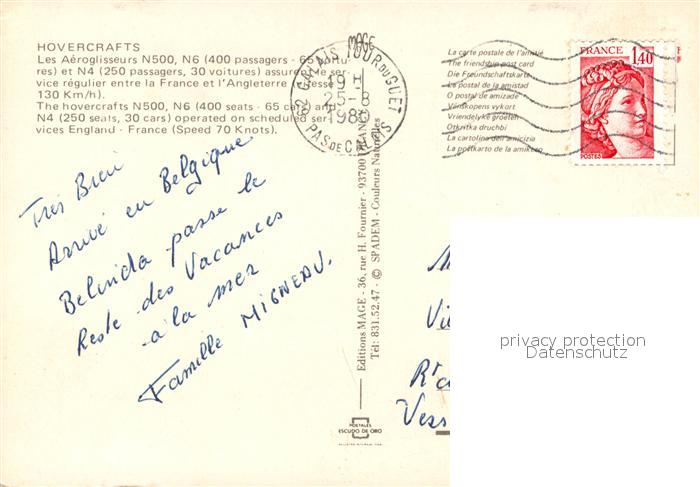 HOVERCRAFTS
Les Aéroglisseurs N500, N6 (400 passagers - 65 voitu-
res) et N4 (250 passagers, 30 voitures) assurent le ser-
vice régulier entre la France et l'Angleterre (Vitesse
130 Km/h).
The hovercrafts N500, N6 (400 seats - 65 cars) and
N4 (250 seats, 30 cars) operated on scheduled ser-
vices England - France (Speed 70 Knots).
MAGE
62 CALAIS JOUR DU GUET
19 H
25 - 8
1980
PAS DE CALAIS
La carte postale de l'amitié
The friendship post card
Die Freundschaftskarte
La postal de la amistad
O postal de amizade
Vänskapens vykort
Vriendelyke groeten
Otkritka druchbi
La cartolina dell'amicizia
La poŝtkarto de la amikeco
FRANCE
1,40
POSTES
Très Bien
Arrivé en Belgique
Belinda passe le
Reste des Vacances
à la mer
Famille MIGNEAU.
Editions MAGE - 36, rue H. Fournier - 93700 DRANCY
Tél: 831.52.47 - © SPADEM - Couleurs Naturelles
POSTALES
ESCUDO DE ORO
M
Vi
R
Vers
privacy protection
Datenschutz